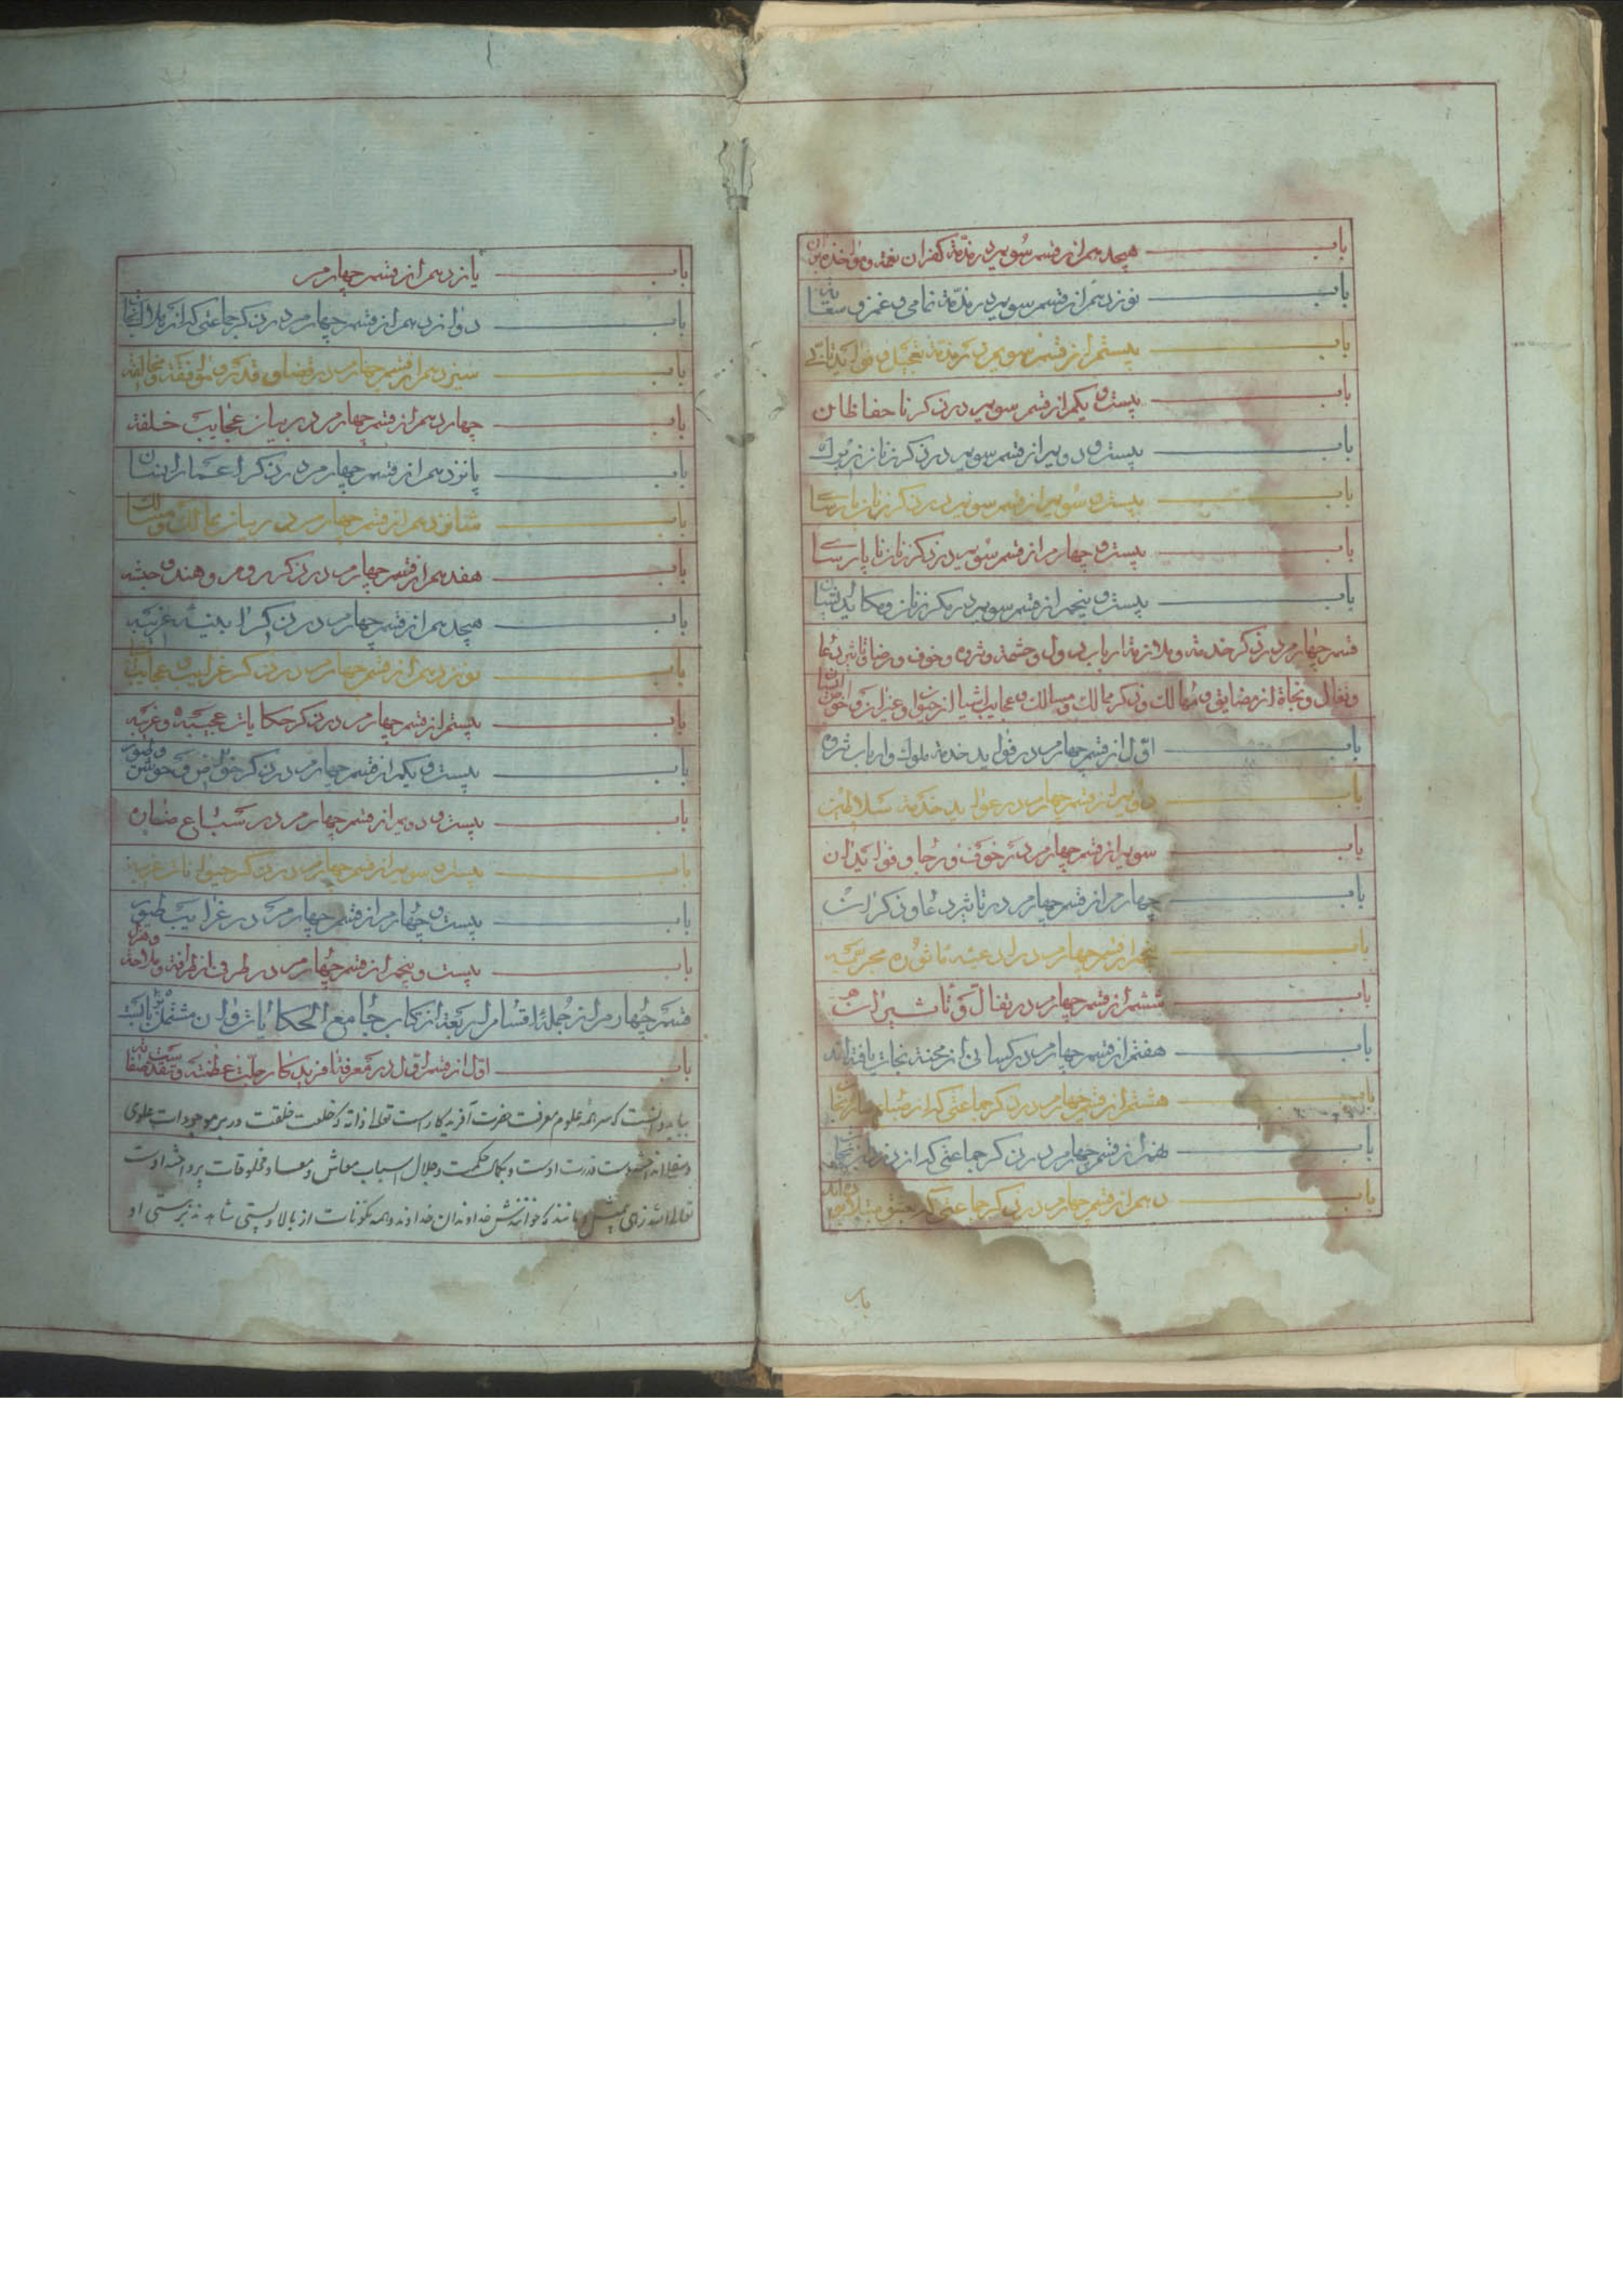 باب هیجدهم از قسم سویم در مذمة کفران نعمة و مواخذه بدان
باب نوزدهم از قسم سویم در مذمة نمامی و غمز و سعایة
باب بیستم از قسم سویم در مذمة تعجیل و فواید تانی
باب بیست و یکم از قسم سویم در ذکر ناحفاظان
باب بیست و دویم از قسم سویم در ذکر زنان زیرک
باب بیست و سویم از قسم سویم در ذکر زنان پارسا
باب بیست و چهارم از قسم سویم در ذکر زنان نا پارسا
باب بیست و پنجم از قسم سویم در مکر زنان و مکاید ایشان
قسم چهارم در ذکر خدمة و ملازمة ارباب دول و حشمة و ثروه و خوف و رضا و تاثیر دعا
و تفال و نجاة از مضایق و مهالک و ذکر ممالک و مسالک و عجایب اشیا از حیوان و غیر آن و خواص ایشان
باب اول از قسم چهارم در فواید خدمة ملوک و ارباب ثروه
باب دویم از قسم چهارم در عواید خدمة سلاطین
باب سویم از قسم چهارم در خوف و رجا و فواید آن
باب چهارم از قسم چهارم در تاثیر دعا و ذکر آن
باب پنجم از قسم چهارم در ادعیه ماثوره مجربه
باب ششم از قسم چهارم در تفال و تاثیر آن
باب هفتم از قسم چهارم در کسانی از محنة نجات یافته اند
باب هشتم از قسم چهارم در ذکر جماعتی که از
باب نهم از قسم چهارم در ذکر جماعتی که از
باب دهم از قسم چهارم در ذکر جماعتی که بعشق مبتلا بوده اند
باب
باب یازدهم از قسم چهارم
باب دوازدهم از قسم چهارم در ذکر جماعتی که از
باب سیزدهم از قسم چهارم در قضا و قدر و موافقة و مخالفة
باب چهاردهم از قسم چهارم در بیان عجایب خلقة
باب پانزدهم از قسم چهارم در ذکر اعمار انسان
باب شانزدهم از قسم چهارم در بیان ممالک و مسالک
باب هفدهم از قسم چهارم در ذکر روم و هند و حبشه
باب هیجدهم از قسم چهارم در ذکر ابنیه غریبه
باب نوزدهم از قسم چهارم در ذکر غرایب و عجایب
باب بیستم از قسم چهارم در ذکر حکایات عجیبه و غریبه
باب بیست و یکم از قسم چهارم در ذکر خواص وحوش و طیور
باب بیست و دویم از قسم چهارم در سباع ضاره
باب بیست و سویم از قسم چهارم در ذکر حیوانات غریبه
باب بیست و چهارم از قسم چهارم در غرایب طیور
باب بیست و پنجم از قسم چهارم در طرف از ظرافة و ملاحة و هزل
قسم چهارم از جمله اقسام اربعة از کتاب جامع الحکایات و آن مشتمل بر باب
باب اول از قسم اول در معرفة افریدکار جلت عظمته و تقدست صفاته
بباید دانست که سر همه علوم معرفت حضرت آفریدکار است تعالی ذاته که خلعت خلقت در بر موجودات علوی
و سفلی انداخته دست قدرت اوست و بکمال حکمت و جلال اسباب معاش و معاد مخلوقات پرداخته اوست
خداوندان خداوند و همه مکونات از بالا و پستی شاهدند بر هستی او